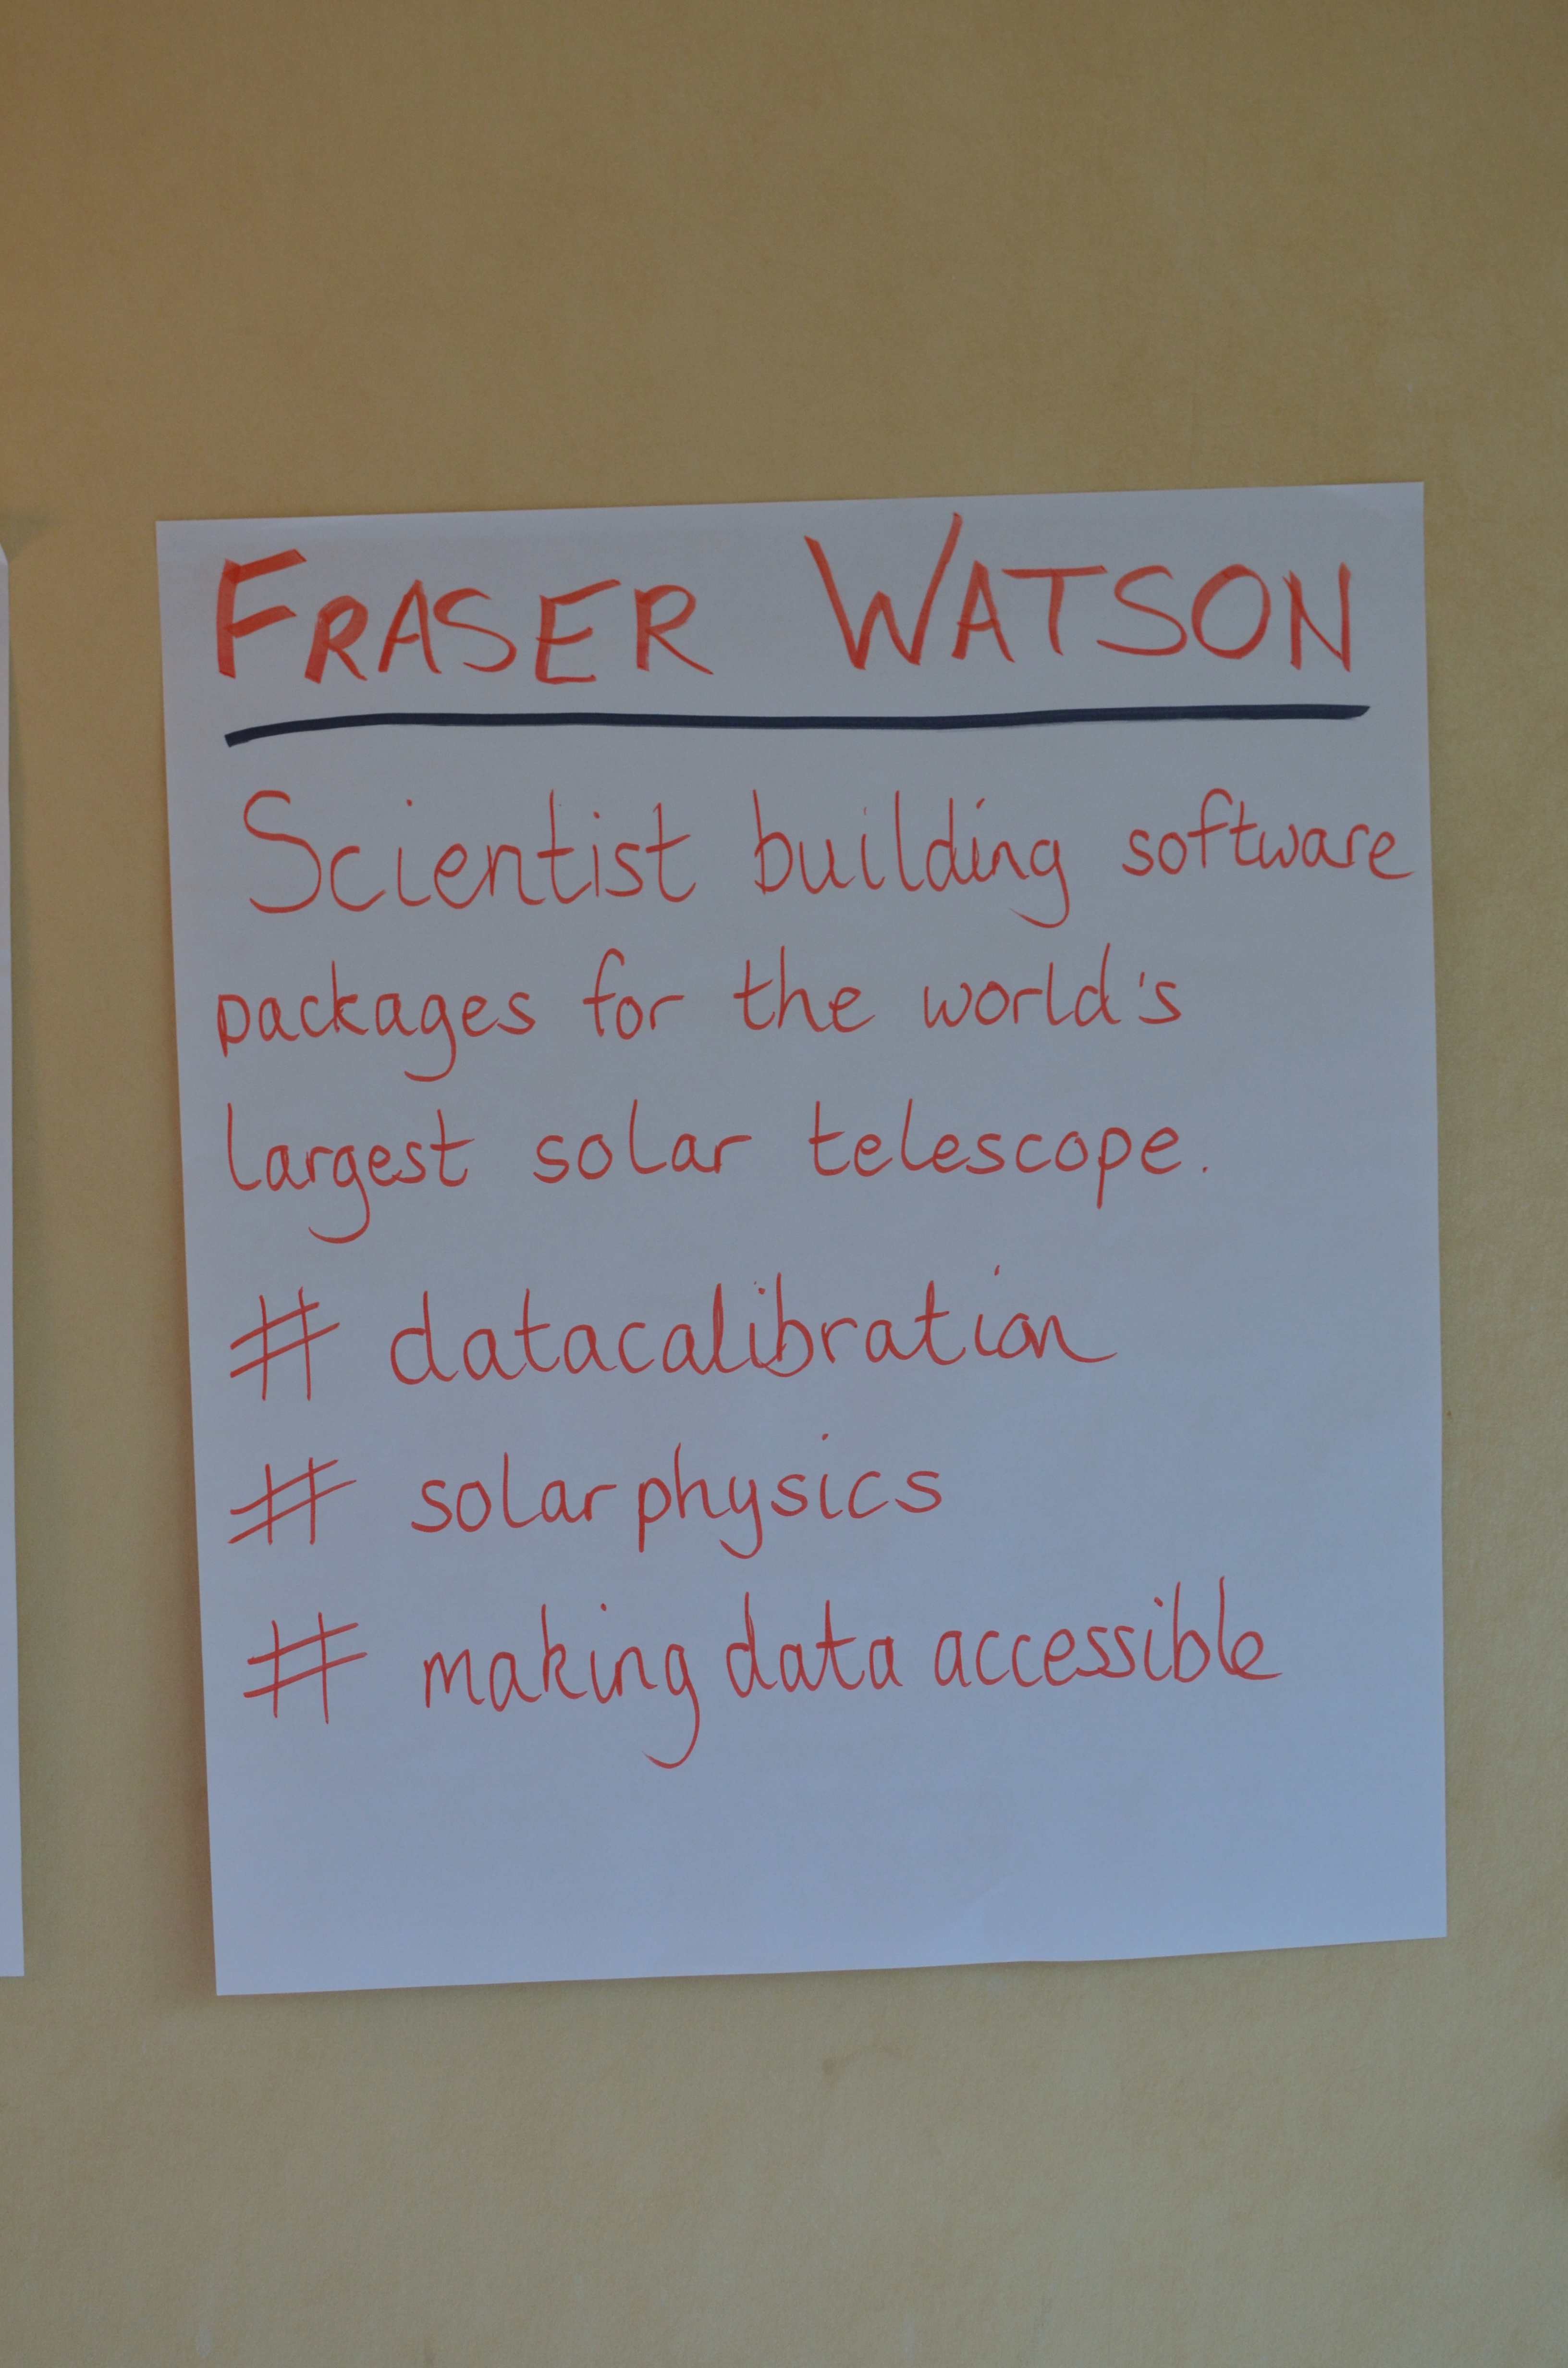 FRASER WATSON
Scientist building software
packages for the world's
largest solar telescope.
# datacalibration
# solarphysics
# making data accessible